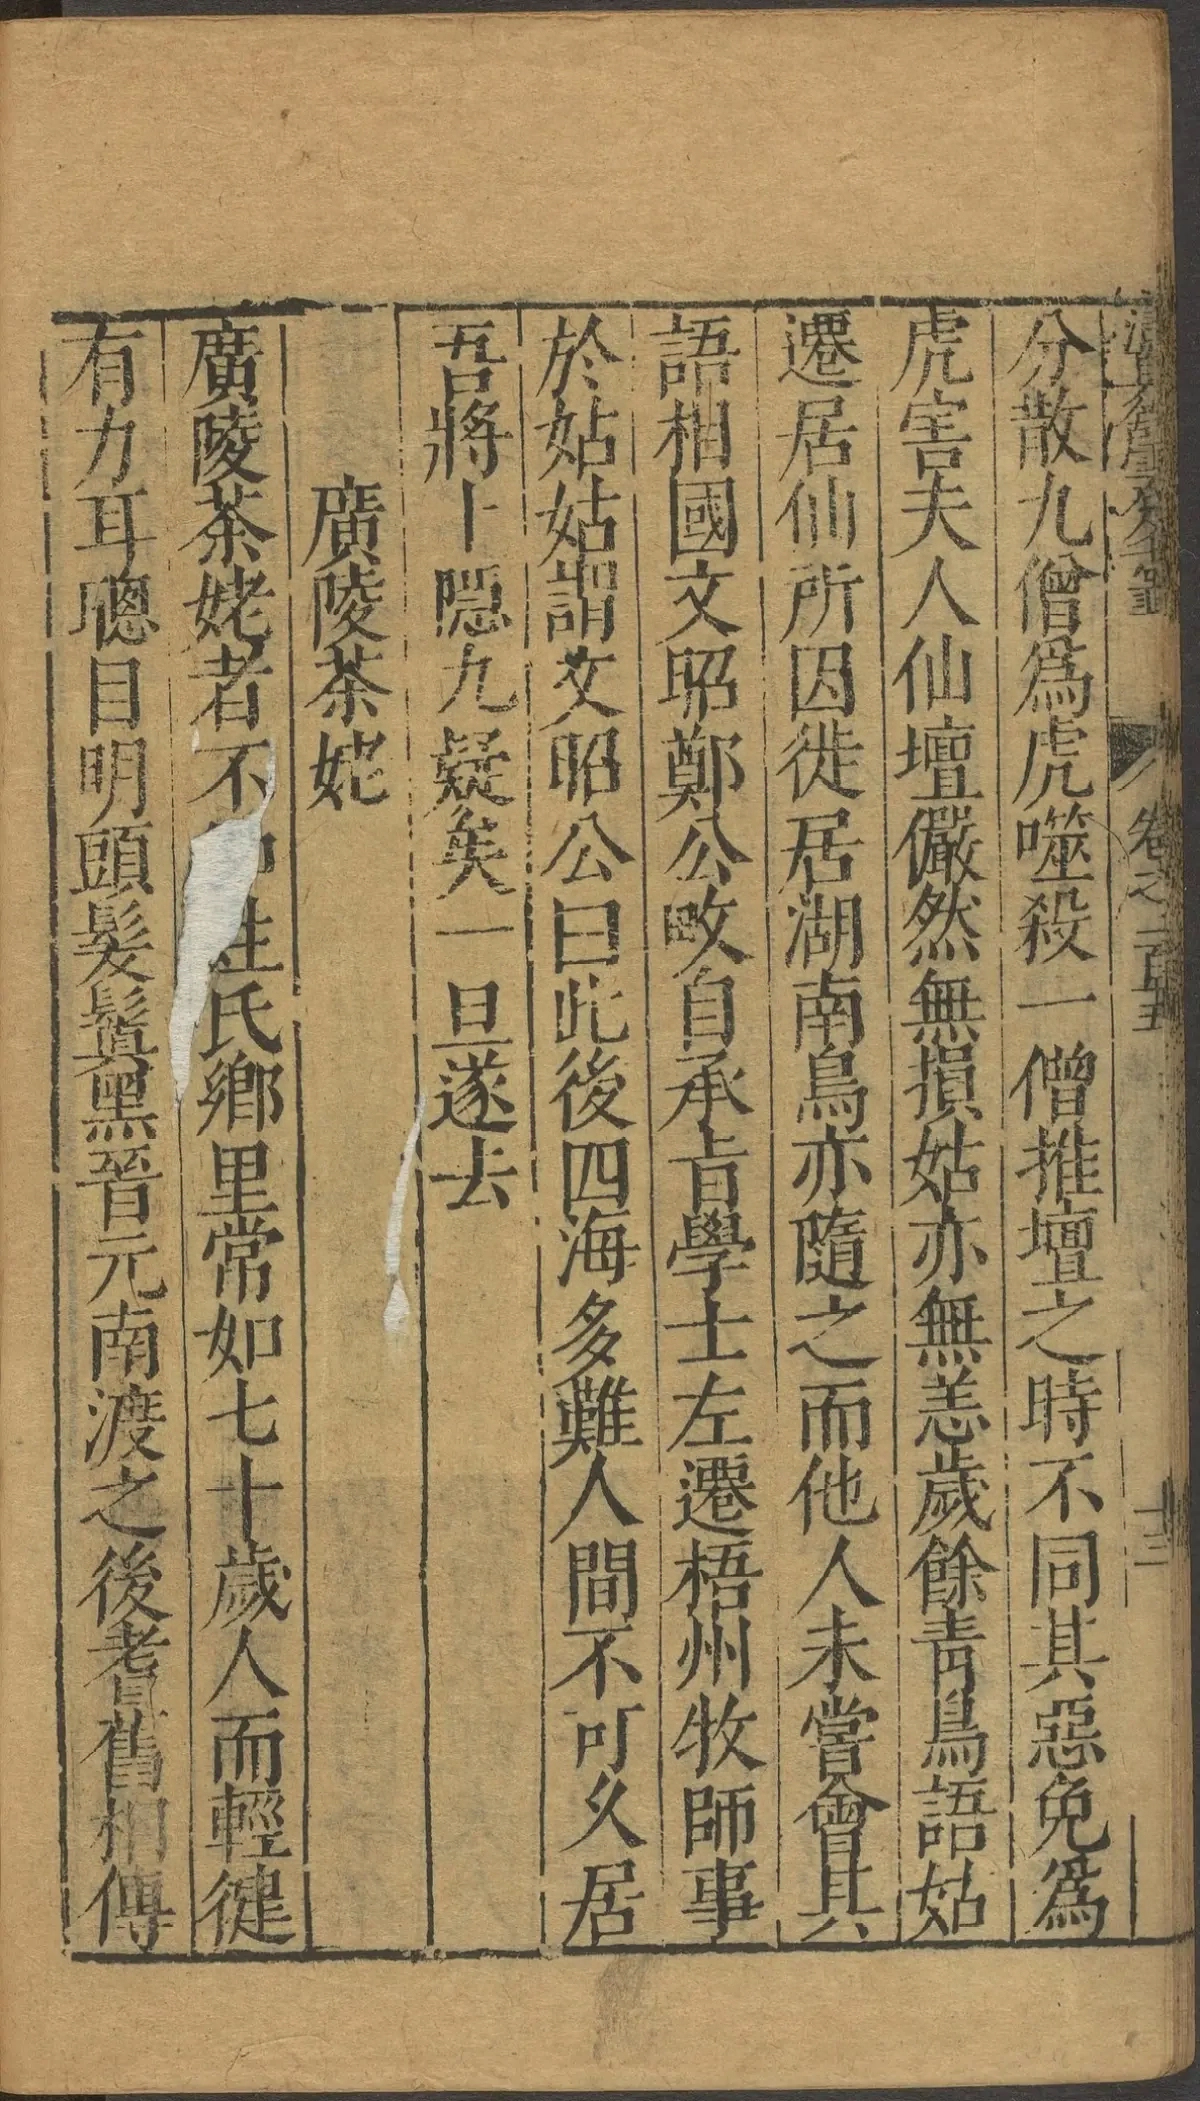 卷之一百五
十三
分散九僧爲虎噬殺一僧推壇之時不同其惡免爲
虎害夫人仙壇儼然無損姑亦無恙歲餘青鳥語姑
遷居仙所因徙居湖南鳥亦隨之而他人未嘗會其
語相國文昭鄭公畋自承旨學士左遷梧州牧師事
於姑姑謂文昭公曰此後四海多難人間不可久居
吾將卜隠九疑矣一旦遂去
廣陵茶姥
廣陵茶姥者不姓氏鄉里常如七十歲人而輕徤
有力耳聰目明頭髮鬒黑晉元南渡之後耆舊相傳